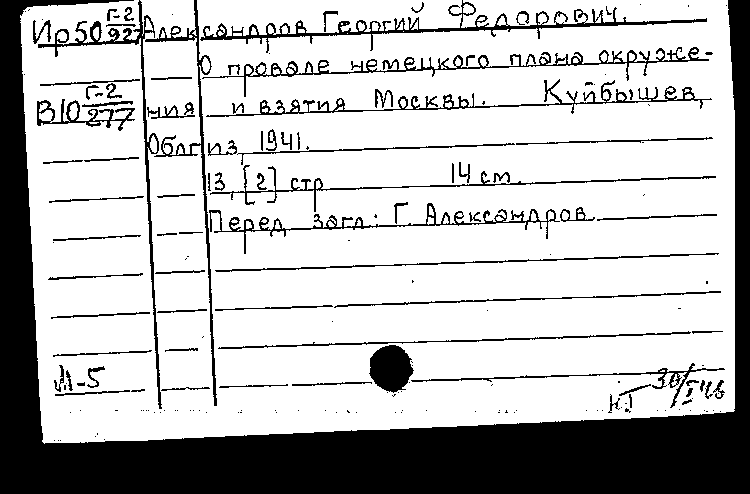 Ир50 Г-2/927 Александров, Георгий Федорович.
О провале немецкого плана окруже-
В10 Г-2/277 ния и взятия Москвы. Куйбышев,
Облгиз, 1941.
13, [2] стр 14 cm.
Перед загл.: Г. Александров
М-5
30/I 46